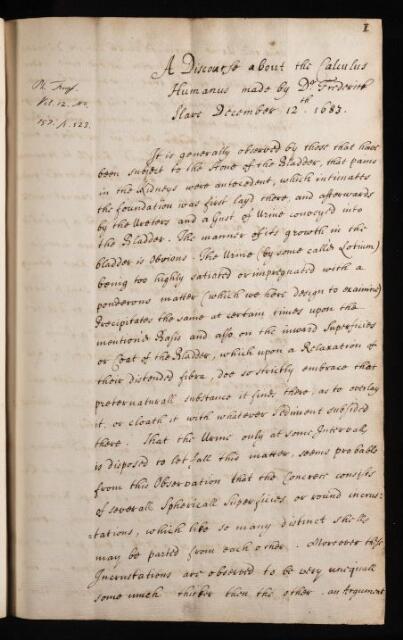 1
A Discourse about the Calculus
Humanus made by Dr. Frederick
Slare December 12th. 1683.
Ph. Trans.
Vol. 12. No.
157. p. 523.
It is generally observed by those that have
been subject to the Stone of the Bladder, that pains
in the Kidneys were antecedent, which intimates
the foundation was first layd there, and afterwards
by the Ureters and a Gust of Urine convey'd into
the Bladder. The manner of its growth in the
bladder is Obvious. The Urine (by some called Lotium)
being too highly satiated or impregnated with a
ponderous matter (which we here design to examine)
Precipitates the same at certain times upon the
mention'd Basis and also on the inward Superficies
or Coat of the Bladder, which upon a Relaxation of
their distended fibra, doe so strictly embrace that
preternaturall substance it finds there, as to overlay
it, or cloath it with whatever Sediment subsided
there. That the Urine only at some Intervals
is disposed to let fall this matter, seems probable
from this Observation that the Concrete consists
of severall Sphericall Superficies or round incrus-
tations, which like so many distinct shells
may be parted from each other. Moreover these
Incrustations are observed to be very unequall
some much thicker then the other. an Argument